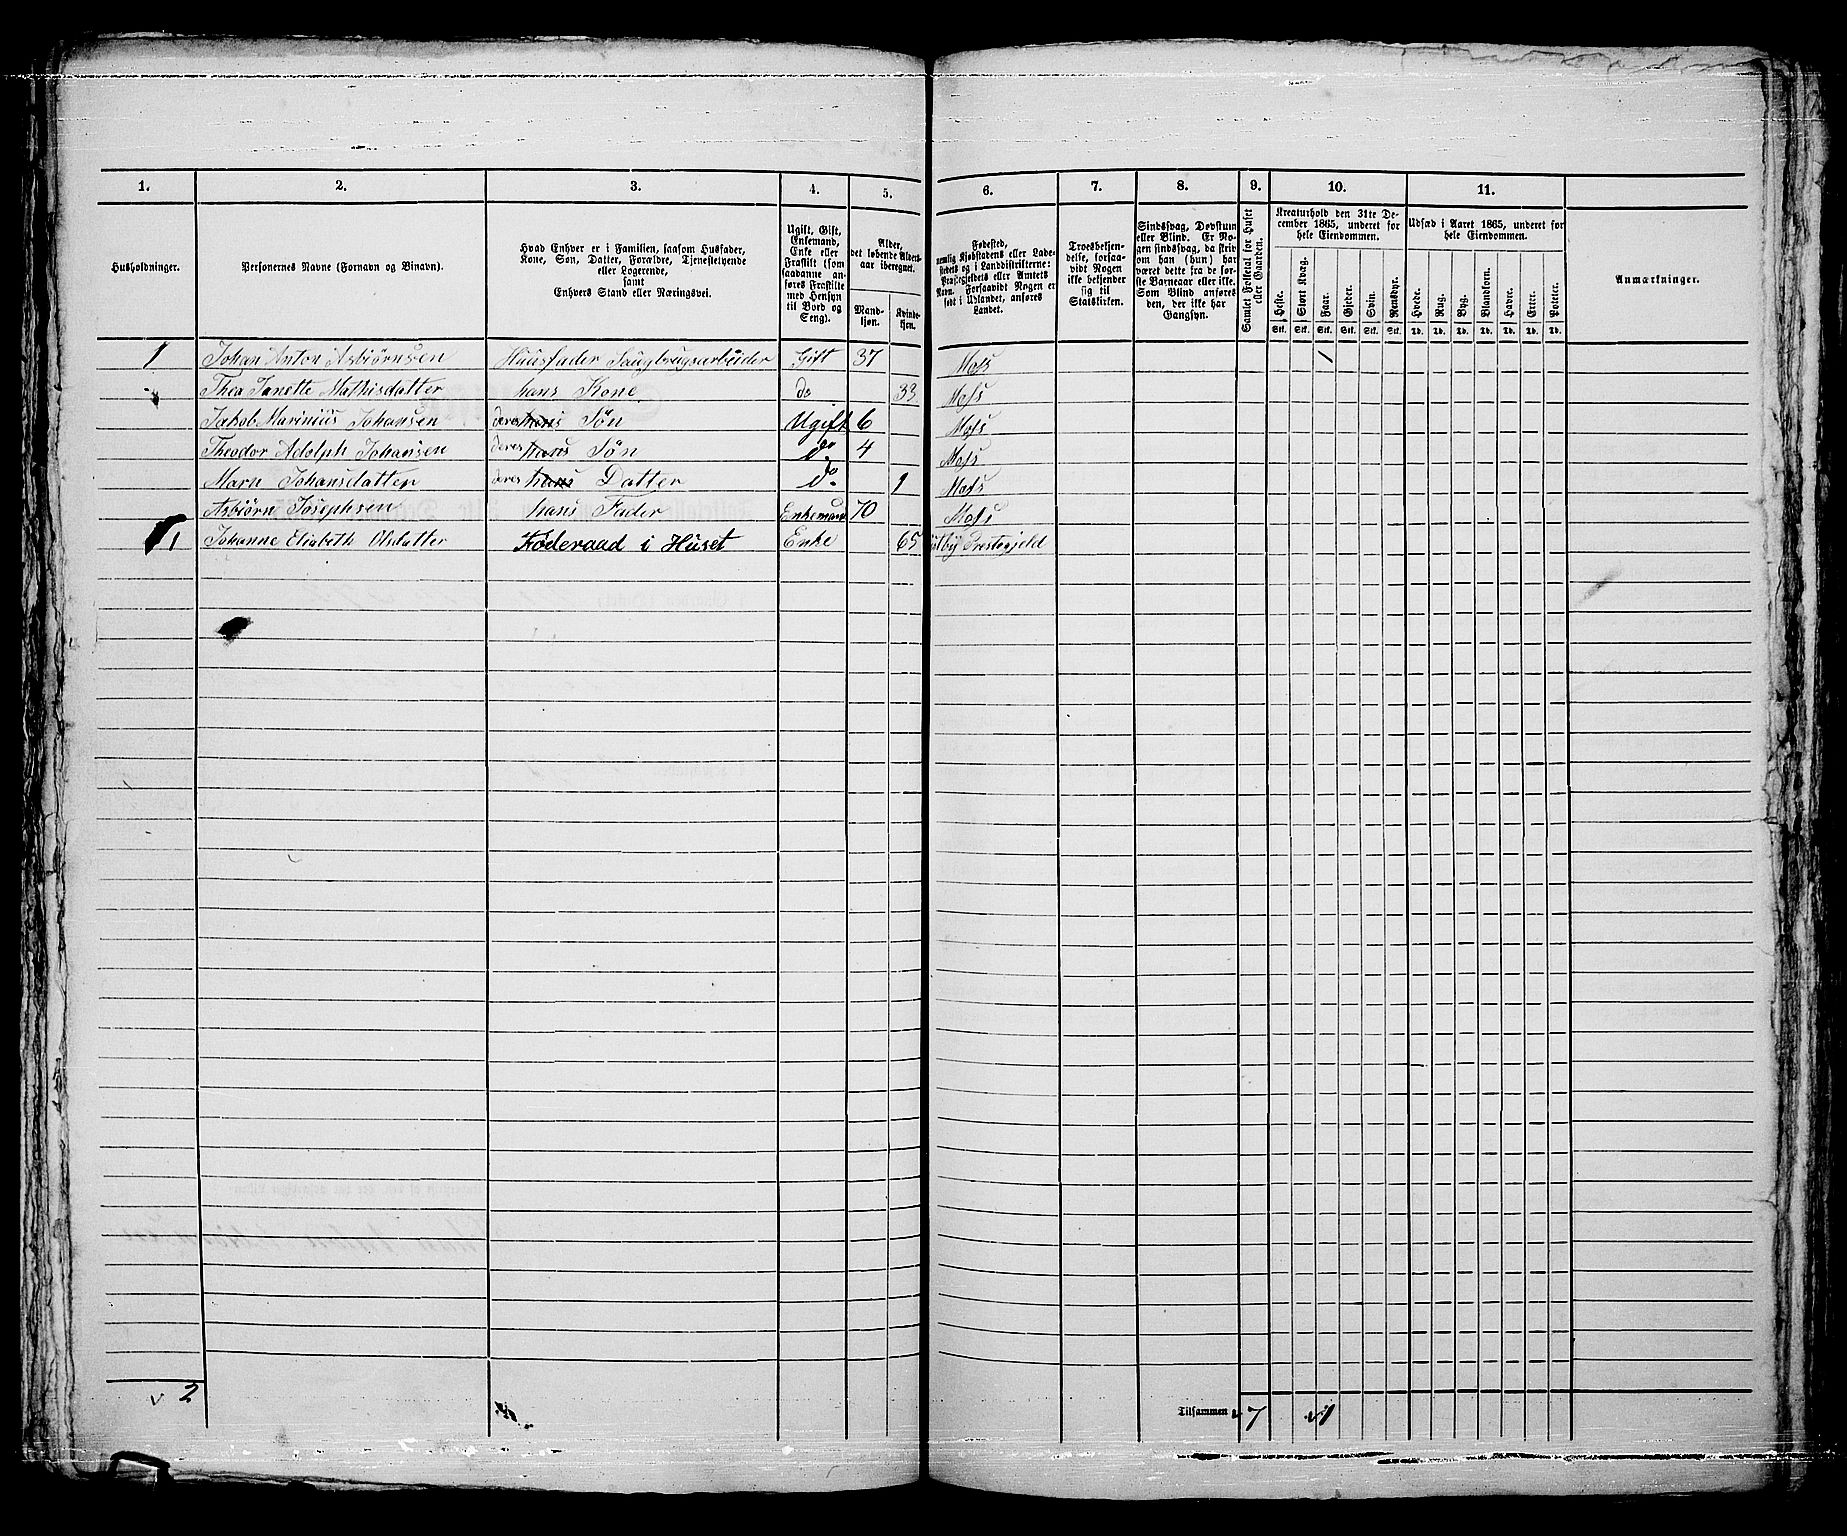 1. 2. 3. 4. 5. 6. 7. 8. 9. 10. 11.
Husholdninger.
Personernes Navne (Fornavn og Binavn).
Hvad Enhver er i Familien, saasom Husfader,
Kone, Søn, Datter, Forældre, Tjenestetyende
eller Logerende,
samt
Enhvers Stand eller Næringsvei.
Ugift, Gift,
Enkemand,
Enke eller
Fraskilt (som
saadanne an-
føres Fraskilte
med Hensyn
til Bord og
Seng).
Alder,
det løbende Alders-
aar iberegnet.
Mand-
kjøn.
Kvinde-
kjøn.
Fødested,
nemlig Kjøbstadens eller Lade-
stedets og i Landdistrikterne:
Præstegjeldets eller Amtets
Navn. Forsaavidt Nogen er
født i Udlandet, anføres
Landet.
Troesbekjen-
delse, forsaa-
vidt Nogen
ikke bekjender
sig til
Statskirken.
Sindssvag, Døvstum
eller Blind. Er No-
gen sindssvag, da skriv
om han (hun) har
været dette fra de før-
ste Barneaar eller ikke.
Som Blind anføres
den, der ikke har
Gangsyn.
Samlet Folketal for Huset
eller Gaarden.
Kreaturhold den 31te De-
cember 1865, underet for
hele Eiendommen.
Heste. Stort Kvæg. Faar. Gjeder. Svin. Rensdyr.
Stk. Stk. Stk. Stk. Stk. Stk.
Udsæd i Aaret 1865, underet for
hele Eiendommen.
Hvede. Rug. Byg. Blandkorn. Havre. Erter. Poteter.
Td. Td. Td. Td. Td. Td. Td.
Anmærkninger.
1 Johan Anton Asbjørnsen Huusfader Saugbrugsarbeider Gift 37 Moss 1
Thea Janette Mathisdatter hans Kone do 33 Moss
Jakob Marinius Johansen deres hans Søn Ugift 6 Moss
Theodor Adolph Johansen deres hans Søn do 4 Moss
Marn Johansdatter deres hans Datter do 1 Moss
Asbjørn Josephsen hans Fader Enkemand 70 Moss
1 Johanne Elisabeth Olsdatter Føderaad i Huset Enke 65 Præstegjeld
v 2
Tilsammen v 7 v 1